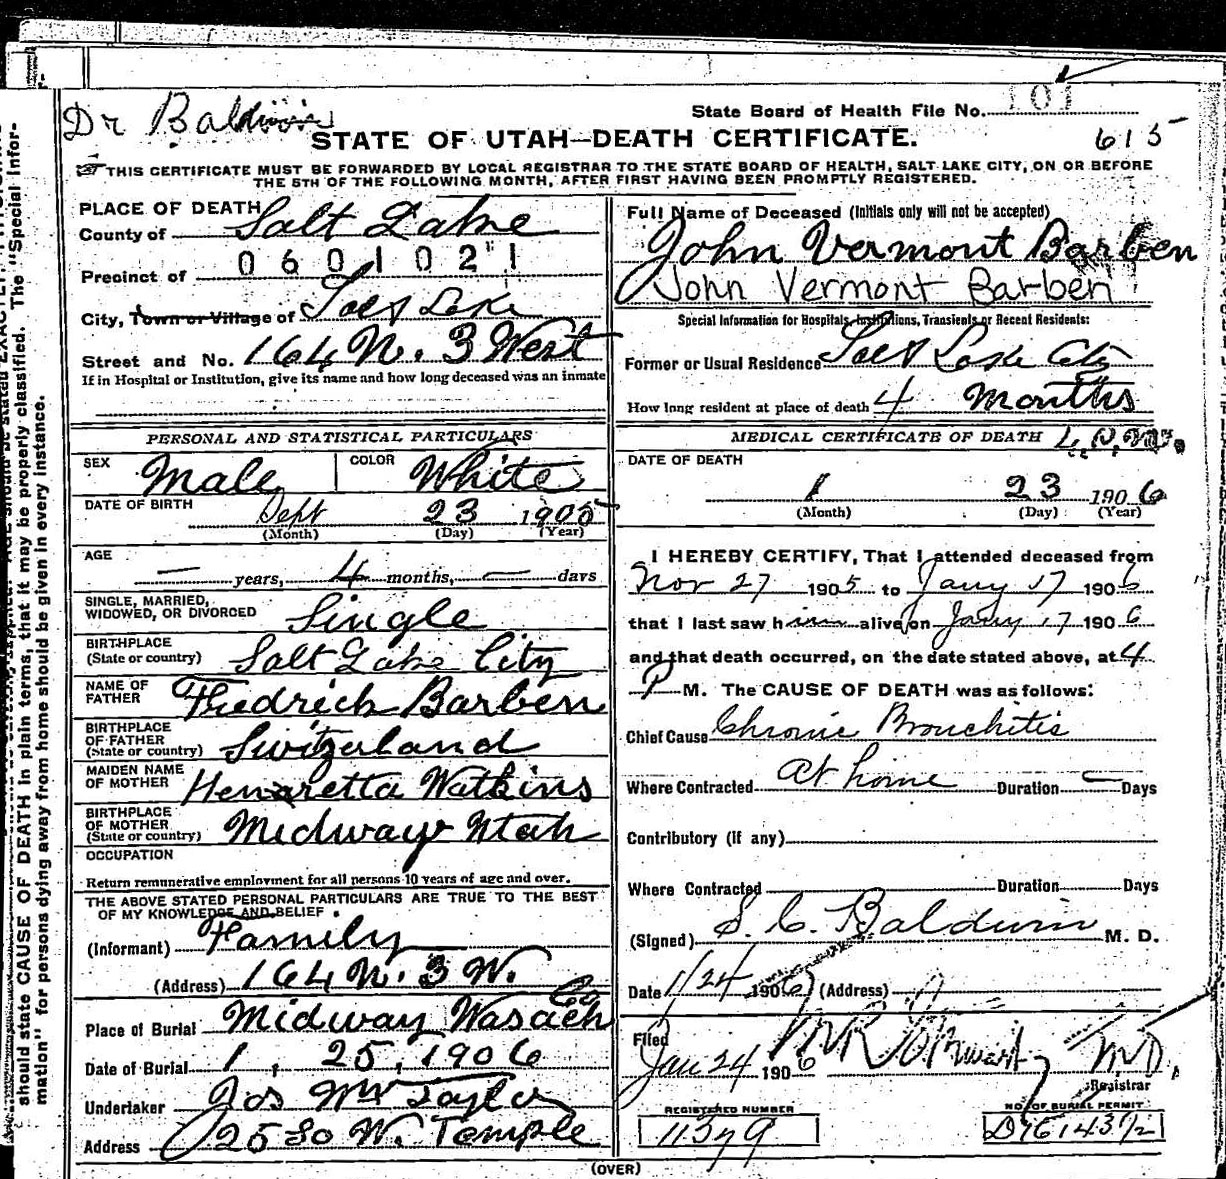 Dr Baldwin
State Board of Health File No. 101
STATE OF UTAH—DEATH CERTIFICATE.
615
THIS CERTIFICATE MUST BE FORWARDED BY LOCAL REGISTRAR TO THE STATE BOARD OF HEALTH, SALT LAKE CITY, ON OR BEFORE
THE 5TH OF THE FOLLOWING MONTH, AFTER FIRST HAVING BEEN PROMPTLY REGISTERED.
PLACE OF DEATH
County of Salt Lake
Precinct of 0601021
City, Town or Village of Salt Lake
Street and No. 164 N. 3 West
If in Hospital or Institution, give its name and how long deceased was an inmate
PERSONAL AND STATISTICAL PARTICULARS
SEX Male COLOR White
DATE OF BIRTH Sept 23 1905
(Month) (Day) (Year)
AGE
— years, 4 months, — days
SINGLE, MARRIED,
WIDOWED, OR DIVORCED Single
BIRTHPLACE
(State or country) Salt Lake City
NAME OF
FATHER Fredrich Barben
BIRTHPLACE
OF FATHER
(State or country) Switzerland
MAIDEN NAME
OF MOTHER Henaretta Watkins
BIRTHPLACE
OF MOTHER
(State or country) Midway Utah
OCCUPATION
Return remunerative employment for all persons 10 years of age and over.
THE ABOVE STATED PERSONAL PARTICULARS ARE TRUE TO THE BEST
OF MY KNOWLEDGE AND BELIEF.
(Informant) Family
(Address) 164 N. 3 W.
Place of Burial Midway Wasach Co
Date of Burial 1, 25, 1906
Undertaker Jos Wm Taylor
Address 25 So W. Temple
Full Name of Deceased (Initials only will not be accepted)
John Vermont Barben
John Vermont Barben
Special Information for Hospitals, Institutions, Transients or Recent Residents:
Former or Usual Residence Salt Lake City
How long resident at place of death 4 Months
MEDICAL CERTIFICATE OF DEATH
DATE OF DEATH
1 23 1906
(Month) (Day) (Year)
I HEREBY CERTIFY, That I attended deceased from
Nov 27 1905 to Jany 17 1906
that I last saw him alive on Jany 17 1906
and that death occurred, on the date stated above, at 4
P M. The CAUSE OF DEATH was as follows:
Chief Cause Chronic Bronchitis
Where Contracted At home Duration — Days
Contributory (if any)
Where Contracted Duration Days
(Signed) S. C. Baldwin M. D.
Date 1/24 1906 (Address)
Filed
Jan 24 1906 M.D.
Registrar
REGISTERED NUMBER
NO. OF BURIAL PERMIT
(OVER)
should state CAUSE OF DEATH in plain terms, that it may be properly classified. The "Special Infor-
mation" for persons dying away from home should be given in every instance.